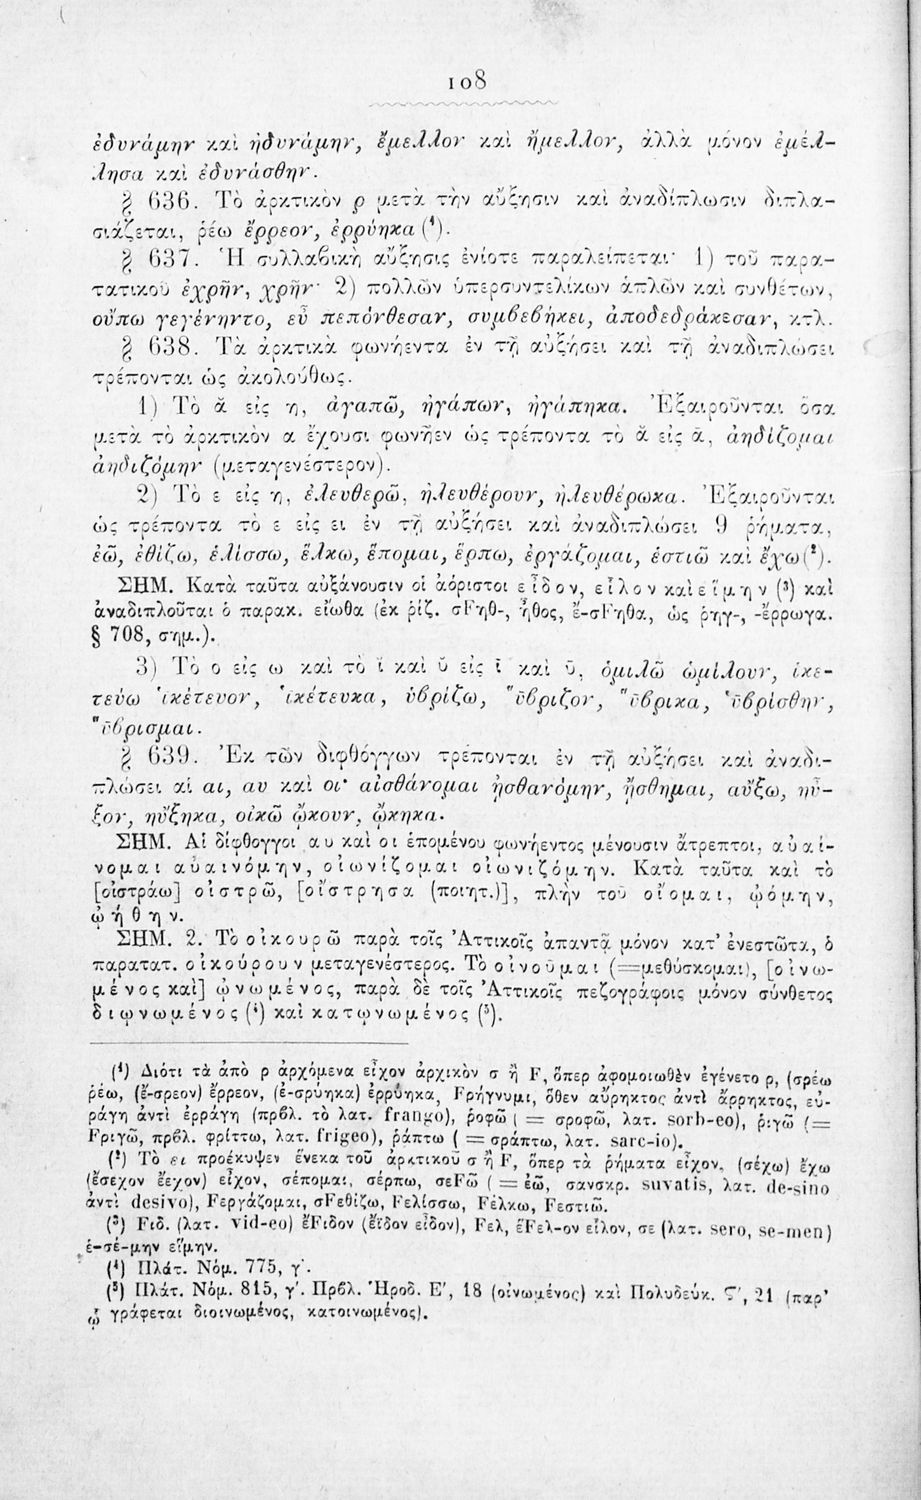 108
ἐδυνάμην καὶ ἠδυνάμην, ἔμελλον καὶ ἤμελλον, ἀλλὰ μόνον ἐμέλ-
λησα καὶ ἐδυνάσθην.
§ 636. Τὸ ἀρκτικὸν ρ μετὰ τὴν αὔξησιν καὶ ἀναδίπλωσιν διπλα-
σιάζεται, ῥέω ἔρρεον, ἐρρύηκα (¹).
§ 637. Ἡ συλλαβικὴ αὔξησις ἐνίοτε παραλείπεται· 1) τοῦ παρα-
τατικοῦ ἐχρῆν, χρῆν· 2) πολλῶν ὑπερσυντελίκων ἁπλῶν καὶ συνθέτων,
οὔπω γεγένηντο, εὖ πεπόνθεσαν, συμβεβήκει, ἀποδεδράκεσαν, κτλ.
§ 638. Τὰ ἀρκτικὰ φωνήεντα ἐν τῇ αὐξήσει καὶ τῇ ἀναδιπλώσει
τρέπονται ὡς ἀκολούθως.
1) Τὸ ᾰ εἰς η, ἀγαπῶ, ἠγάπων, ἠγάπηκα. Ἐξαιροῦνται ὅσα
μετὰ τὸ ἀρκτικὸν α ἔχουσι φωνῆεν ὡς τρέποντα τὸ ᾰ εἰς ᾱ, ἀηδίζομαι
ἀηδιζόμην (μεταγενέστερον).
2) Τὸ ε εἰς η, ἐλευθερῶ, ἠλευθέρουν, ἠλευθέρωκα. Ἐξαιροῦνται
ὡς τρέποντα τὸ ε εἰς ει ἐν τῇ αὐξήσει καὶ ἀναδιπλώσει 9 ῥήματα,
ἐῶ, ἐθίζω, ἑλίσσω, ἕλκω, ἕπομαι, ἕρπω, ἐργάζομαι, ἑστιῶ καὶ ἔχω(²).
ΣΗΜ. Κατὰ ταῦτα αὐξάνουσιν οἱ ἀόριστοι εἶδον, εἷλον καὶ εἵμην (³) καὶ
ἀναδιπλοῦται ὁ παρακ. εἴωθα (ἐκ ῥίζ. σFηθ-, ἦθος, ἔ-σFηθα, ὡς ῥηγ-, -ἔρρωγα.
§ 708, σημ.).
3) Τὸ ο εἰς ω καὶ τὸ ῐ καὶ ῠ εἰς ῑ καὶ ῡ, ὁμιλῶ ὡμίλουν, ἱκε-
τεύω ῾ῑκέτευον, ῾ῑκέτευκα, ὑβρίζω, ῞ῡβριζον, ῞ῡβρικα, ῾ῡβρίσθην,
῞ῡβρισμαι.
§ 639. Ἐκ τῶν διφθόγγων τρέπονται ἐν τῇ αὐξήσει καὶ ἀναδι-
πλώσει αἱ αι, αυ καὶ οι· αἰσθάνομαι ᾐσθανόμην, ᾔσθημαι, αὔξω, ηὖ-
ξον, ηὔξηκα, οἰκῶ ᾤκουν, ᾤκηκα.
ΣΗΜ. Αἱ δίφθογγοι αυ καὶ οι ἑπομένου φωνήεντος μένουσιν ἄτρεπτοι, αὐαί-
νομαι αὐαινόμην, οἰωνίζομαι οἰωνιζόμην. Κατὰ ταῦτα καὶ τὸ
[οἰστράω] οἰστρῶ, [οἴστρησα (ποιητ.)], πλὴν τοῦ οἴομαι, ᾠόμην,
ᾠήθην.
ΣΗΜ. 2. Τὸ οἰκουρῶ παρὰ τοῖς Ἀττικοῖς ἀπαντᾷ μόνον κατ' ἐνεστῶτα, ὁ
παρατατ. οἰκούρουν μεταγενέστερος. Τὸ οἰνοῦμαι (=μεθύσκομαι), [οἰνω-
μένος καὶ] ᾠνωμένος, παρὰ δὲ τοῖς Ἀττικοῖς πεζογράφοις μόνον σύνθετος
διῳνωμένος (⁴) καὶ κατῳνωμένος (⁵).
(¹) Διότι τὰ ἀπὸ ρ ἀρχόμενα εἶχον ἀρχικὸν σ ἢ F, ὅπερ ἀφομοιωθὲν ἐγένετο ρ, (σρέω
ῥέω, (ἔ-σρεον) ἔρρεον, (ἐ-σρύηκα) ἐρρύηκα, Fρήγνυμι, ὅθεν αὔρηκτος ἀντὶ ἄρρηκτος, εὐ-
ράγη ἀντὶ ἐρράγη (πρβλ. τὸ λατ. frango), ῥοφῶ ( = σροφῶ, λατ. sorb-eo), ῥιγῶ (=
Fριγῶ, πρβλ. φρίττω, λατ. frigeo), ῥάπτω ( = σράπτω, λατ. sarc-io).
(²) Τὸ ει προέκυψεν ἕνεκα τοῦ ἀρκτικοῦ σ ἢ F, ὅπερ τὰ ῥήματα εἶχον, (σέχω) ἔχω
(ἔσεχον ἔεχον) εἶχον, σέπομαι, σέρπω, σεFῶ ( = ἐῶ, σανσκρ. suvatis, λατ. de-sino
ἀντὶ desivo), Fεργάζομαι, σFεθίζω, Fελίσσω, Fέλκω, Fεστιῶ.
(³) Fιδ. (λατ. vid-eo) ἔFιδον (ἔϊδον εἶδον), Fελ, ἔFελ-ον εἷλον, σε (λατ. sero, se-men)
ἐ-σέ-μην εἵμην.
(⁴) Πλάτ. Νόμ. 775, γ΄.
(⁵) Πλάτ. Νόμ. 815, γ΄. Πρβλ. Ἡροδ. Ε΄, 18 (οἰνωμένος) καὶ Πολυδεύκ. Ϛ΄, 21 (παρ'
ᾧ γράφεται διοινωμένος, κατοινωμένος).